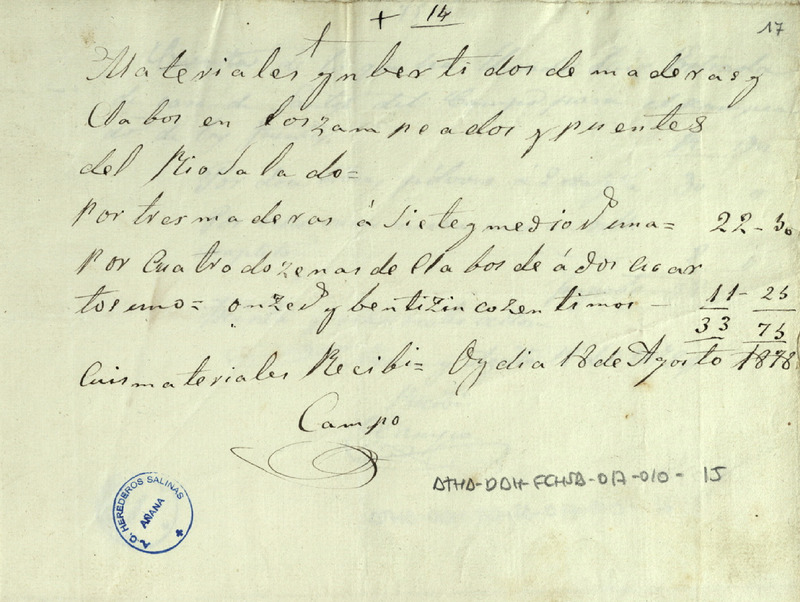 + 14
17
Materiales ynbertidos de maderas y
Clabos en los zampeados y puentes
del Rio Salado=
Por tres maderas á siete y medio una= 22-50
Por cuatro dozenas de Clabos de á dos cuar
tos uno= onze y bentizinco zentimos - 11-25
33 75
Cuis materiales Recibi= Oy dia 18 de Agosto 1878
Campo
ATHA-DAH-FCHSA-017-010-15
HEREDEROS SALINAS
AÑANA